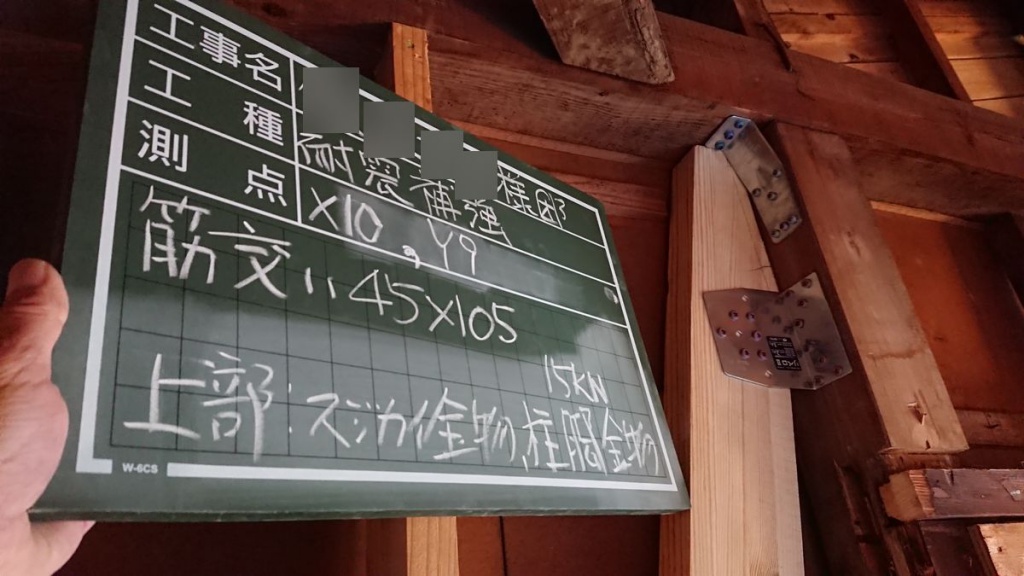 工事名 様邸
工種 耐震補強
測点 X10, Y9
筋交い 45×105
15KN
上部:スジカイ金物,柱脚金物
W-6CS